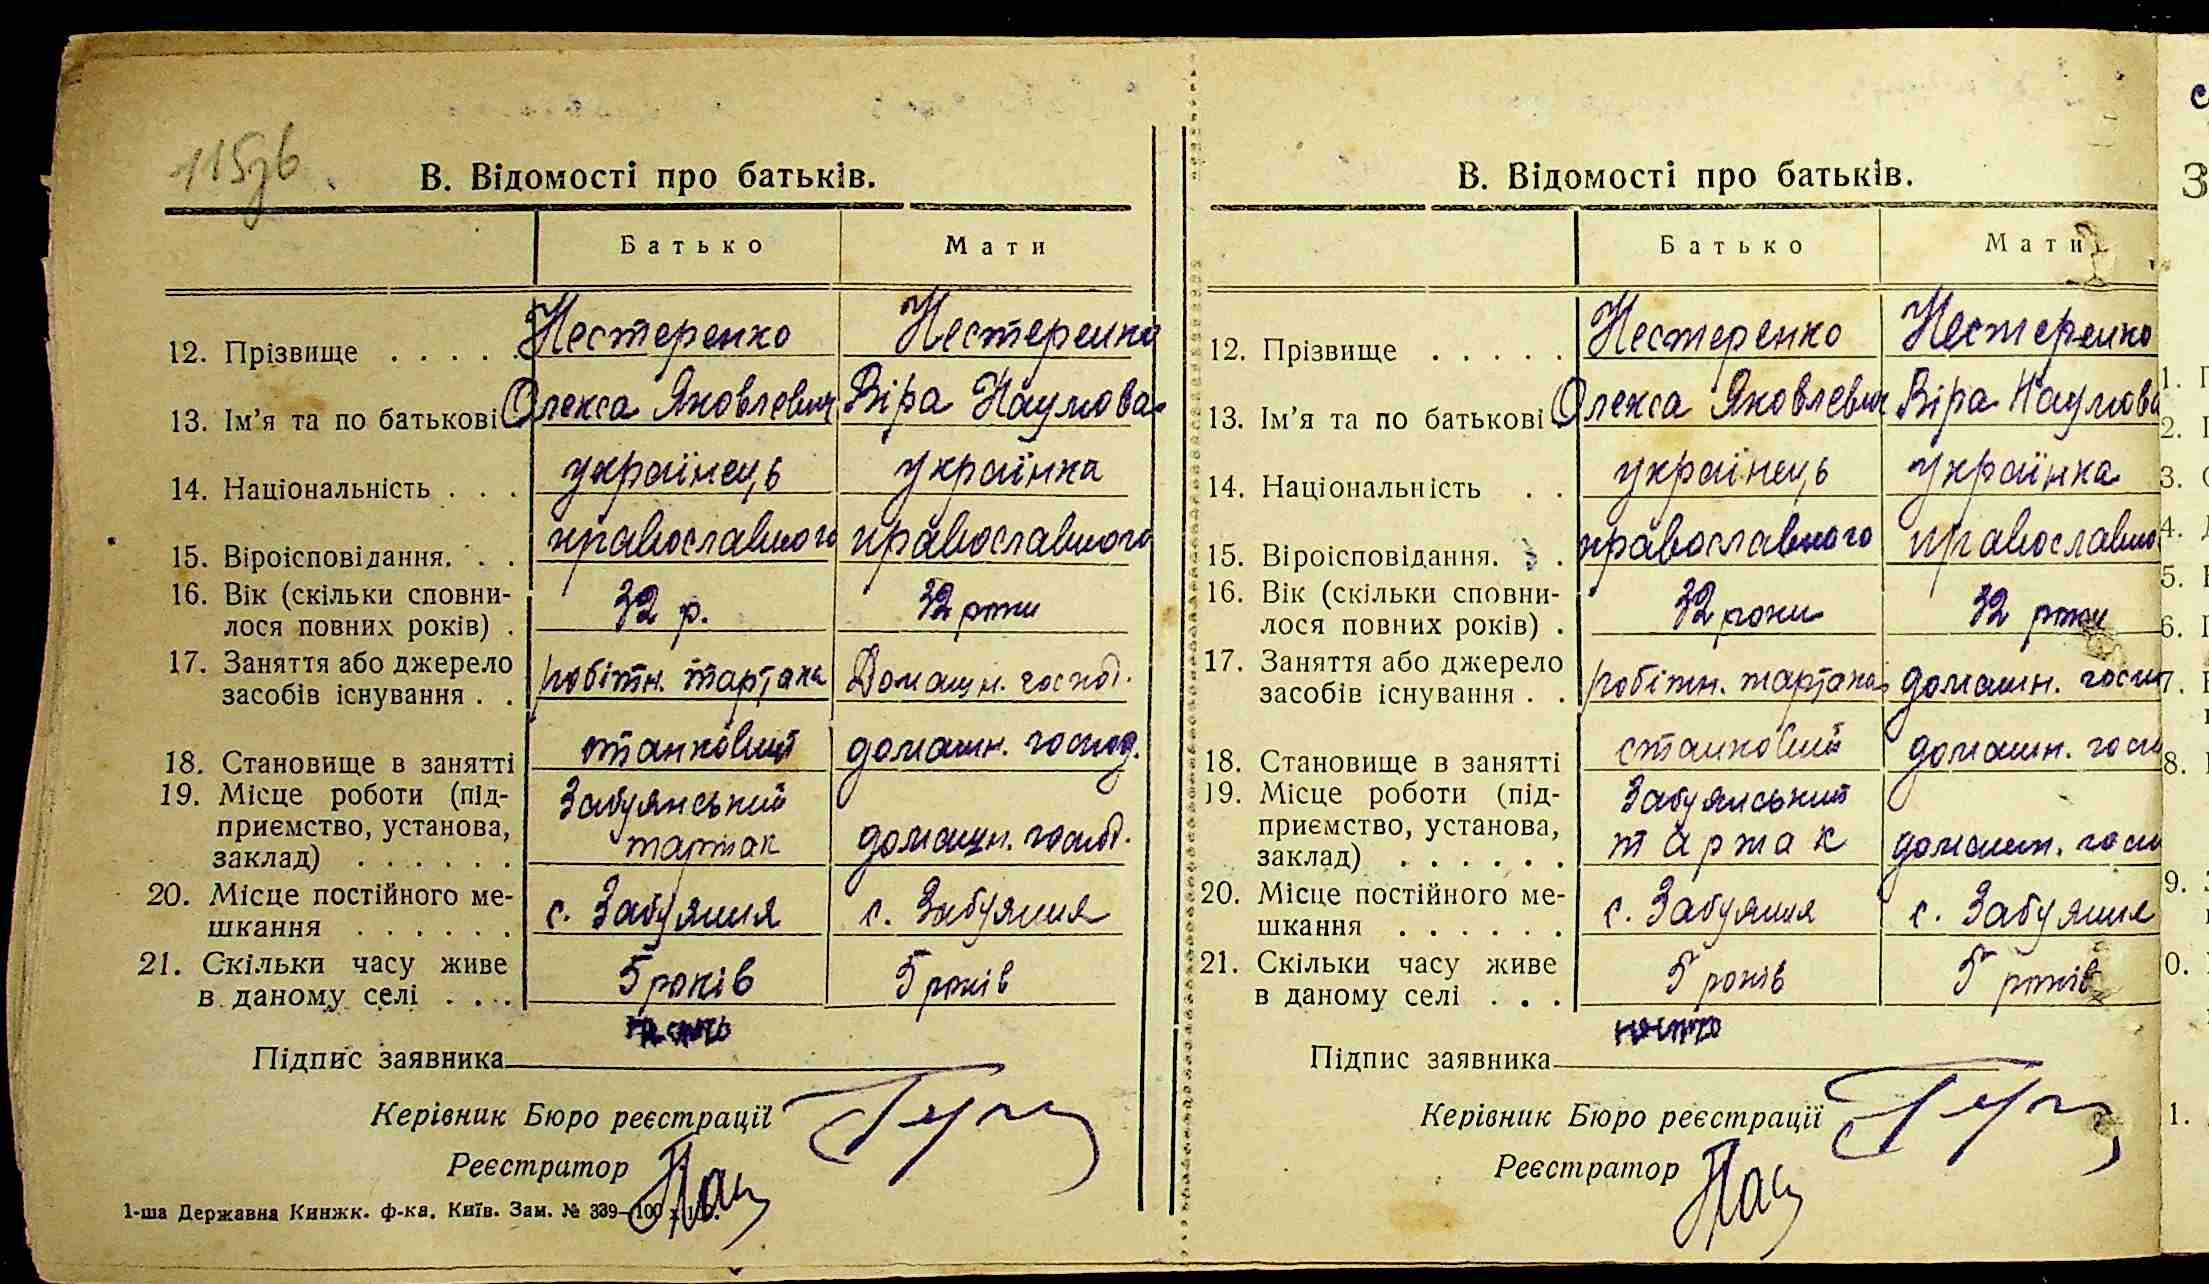 115зв
В. Відомості про батьків.
Батько Мати
12. Прізвище . . . . . Нестеренко Нестеренко
13. Ім'я та по батькові Олекса Яковлевич Віра Наумова
14. Національність . . . українець українка
15. Віроісповідання. . . православного православного
16. Вік (скільки сповни-
лося повних років) . 32 р. 32 роки
17. Заняття або джерело
засобів існування . . робітн. тартака Домашн. господ.
18. Становище в занятті станковий домашн. господ.
19. Місце роботи (під-
приємство, установа,
заклад) . . . . . . Забуянський
тартак домашн. господ.
20. Місце постійного ме-
шкання . . . . . . с. Забуяння с. Забуяння
21. Скільки часу живе
в даному селі . . . 5 років 5 років
Підпис заявника
Керівник Бюро реєстрації
Реєстратор
1-ша Державна Кинжк. ф-ка. Київ. Зам. № 339—100
В. Відомості про батьків.
Батько Мати
12. Прізвище . . . . . Нестеренко Нестеренко
13. Ім'я та по батькові Олекса Яковлевич Віра Наумова
14. Національність . . українець українка
15. Віроісповідання. . православного православно
16. Вік (скільки сповни-
лося повних років) . 32 роки 32 роки
17. Заняття або джерело
засобів існування . . робітн. тартака домашн. госп
18. Становище в занятті станковий домашн. госп
19. Місце роботи (під-
приємство, установа,
заклад) . . . . . . Забуянський
тартак домашн. госп
20. Місце постійного ме-
шкання . . . . . . с. Забуяння с. Забуяння
21. Скільки часу живе
в даному селі . . . 5 років 5 років
Підпис заявника
Керівник Бюро реєстрації
Реєстратор